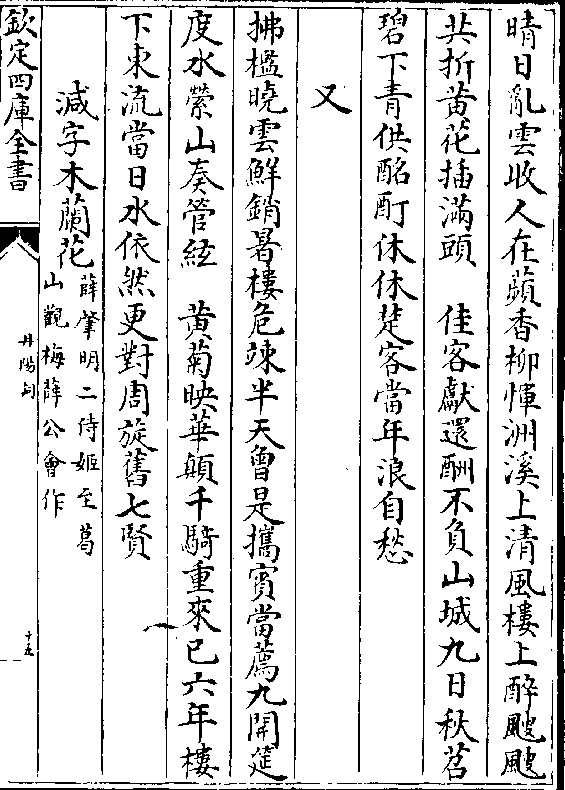 晴日亂雲收人在蘋香柳惲洲溪上清風樓上醉颼颼
共折黃花插滿頭　佳客獻還酬不負山城九日秋苕
碧下青供酩酊休休楚客當年浪自愁
又
拂檻曉雲鮮銷暑樓危竦半天曾是攜賓當薦九開筵
度水縈山奏管絃　黃菊映華顛千騎重來已六年樓
下東流當日水依然更對周旋舊七賢
減字木蘭花
薛肇明二侍姬至葛
山觀梅薛公會作
欽定四庫全書
丹陽詞
十五